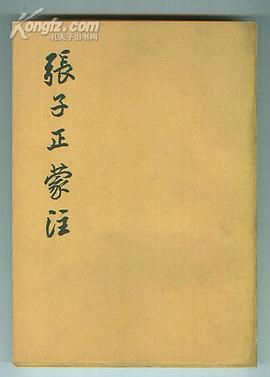 Kongfz.com
孔夫子旧书网
張子正蒙注